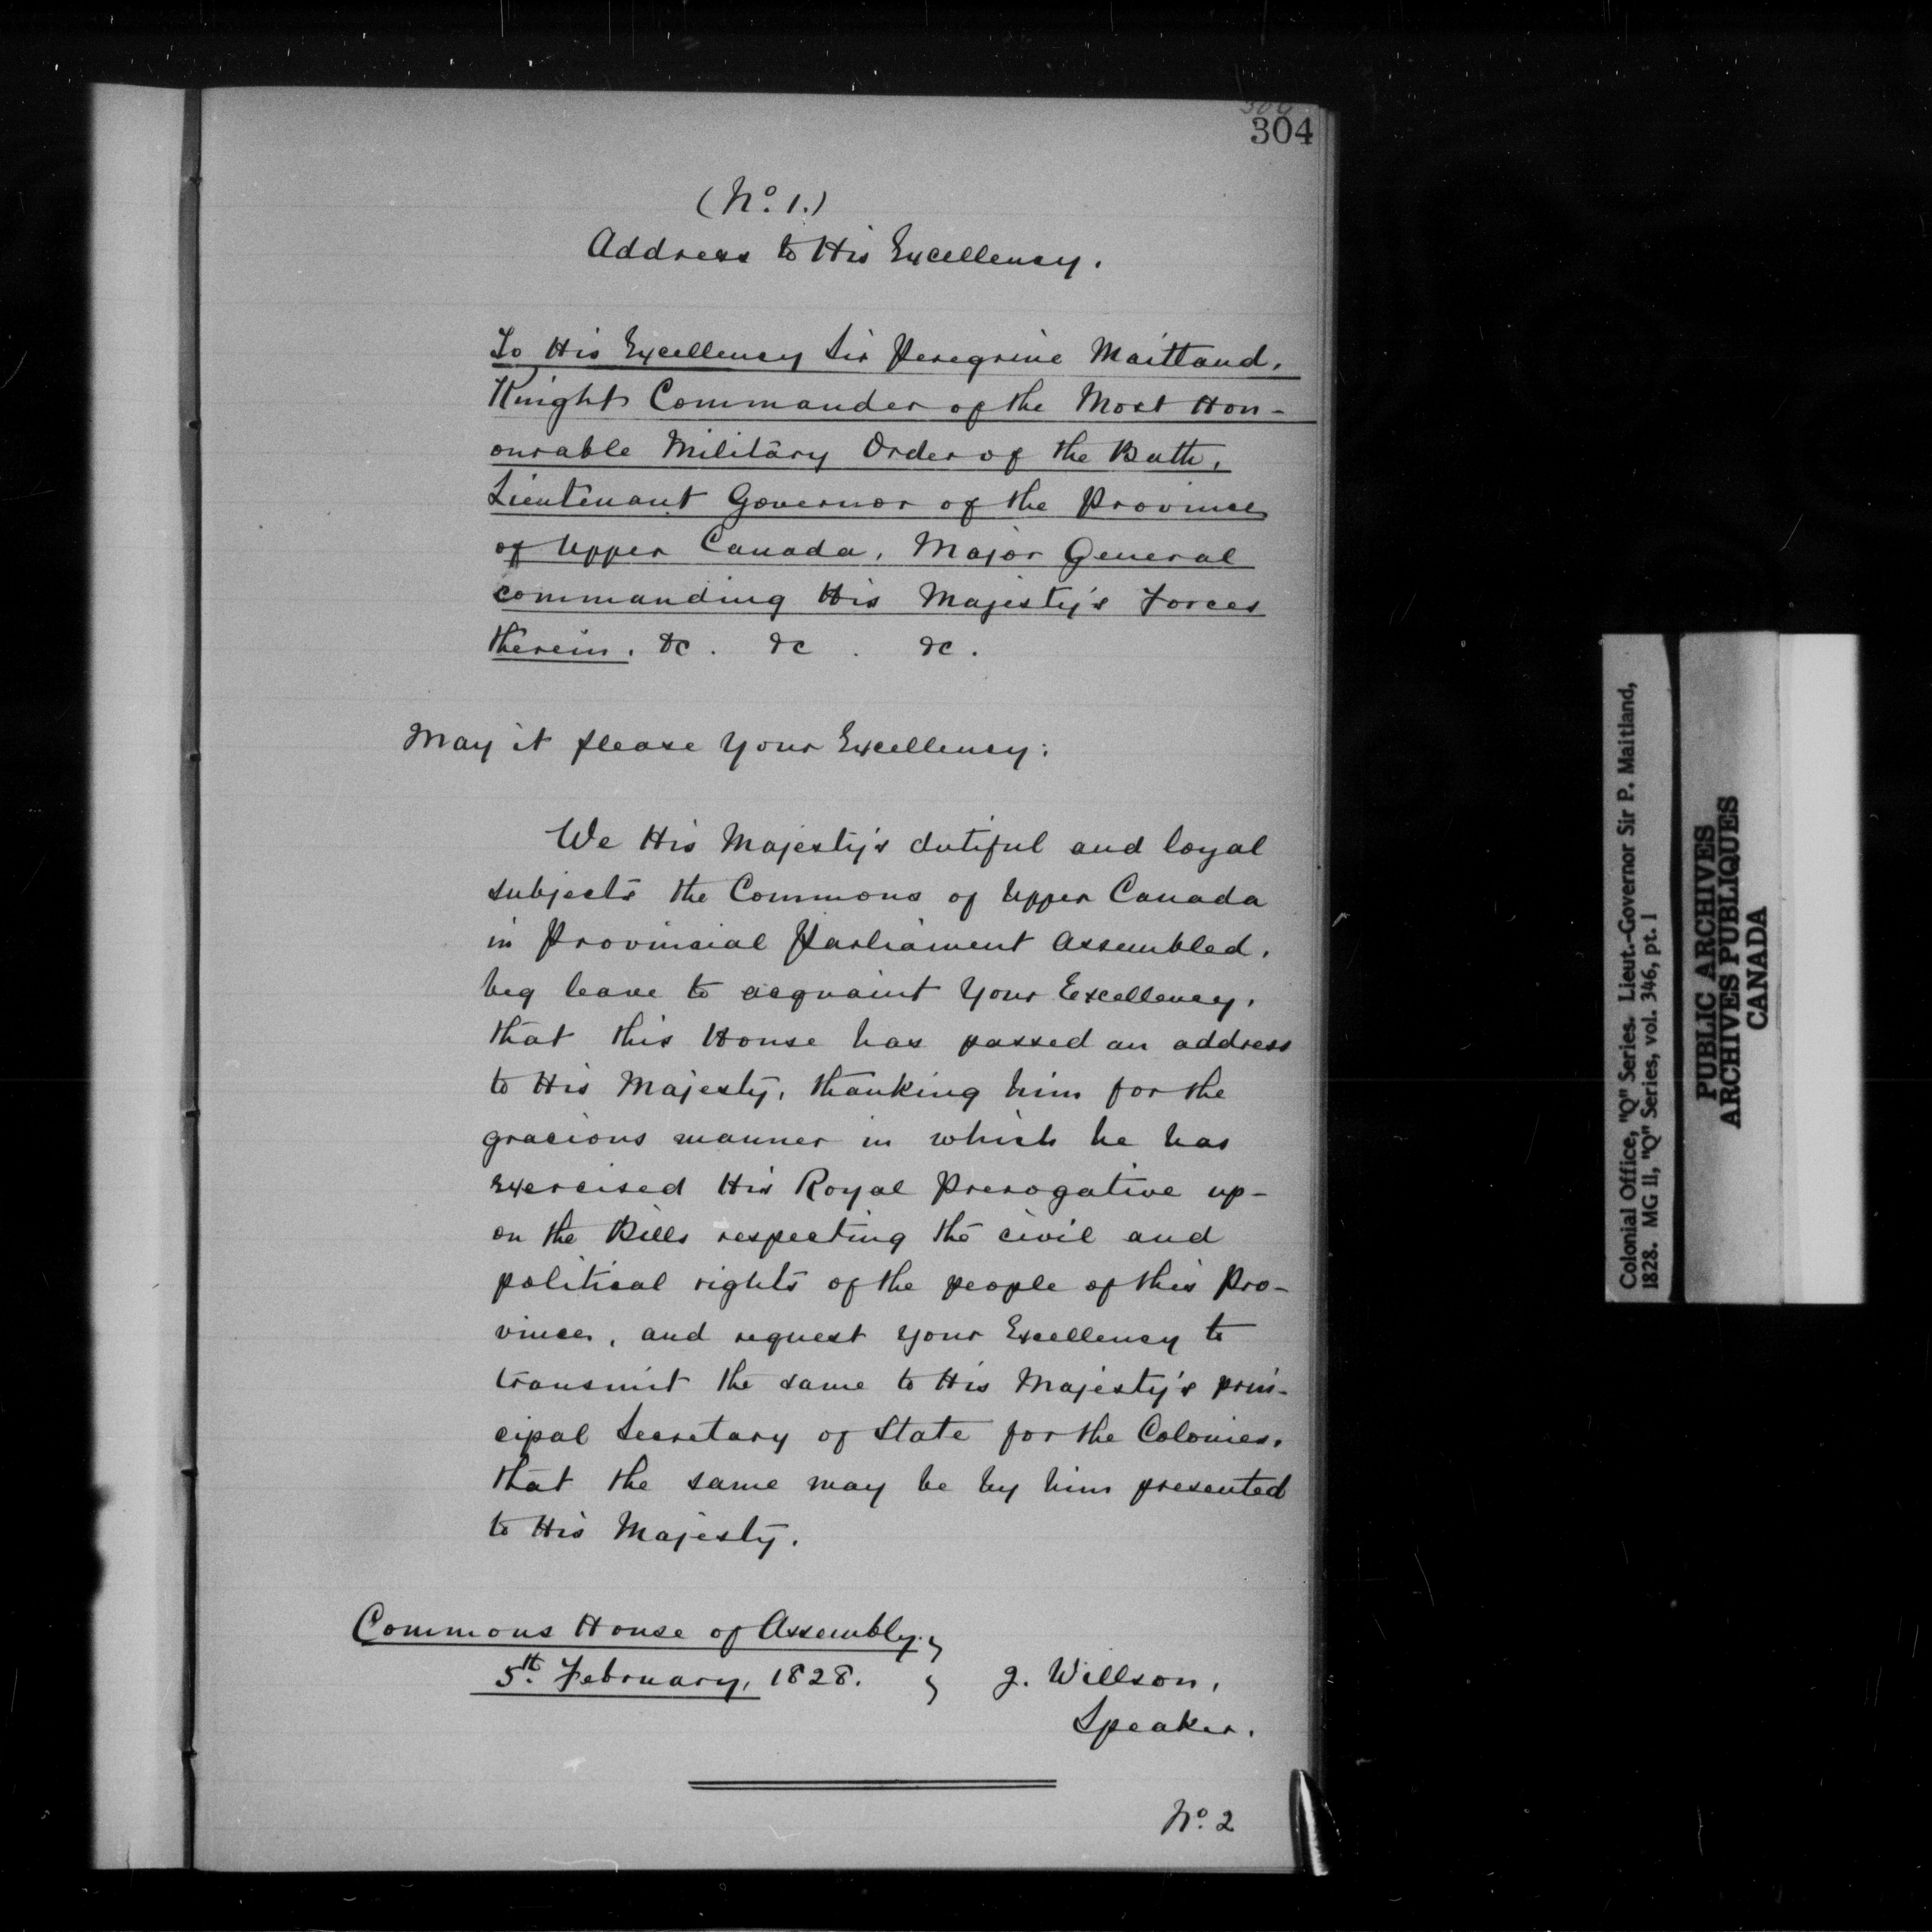 304
(No. 1.)
Address to His Excellency.
To His Excellency Sir Peregrine Maitland,
Knight Commander of the Most Hon-
ourable Military Order of the Bath,
Lieutenant Governor of the Province
of Upper Canada, Major General
commanding His Majesty's Forces
therein, &c. &c. &c.
May it please Your Excellency:
We His Majesty's dutiful and loyal
subjects the Commons of Upper Canada
in Provincial Parliament Assembled,
beg leave to acquaint Your Excellency,
that this House has passed an address
to His Majesty, thanking him for the
gracious manner in which he has
exercised His Royal Prerogative up-
on the Bills respecting the civil and
political rights of the people of this Pro-
vince, and request your Excellency to
transmit the same to His Majesty's prin-
cipal Secretary of State for the Colonies,
that the same may be by him presented
to His Majesty.
Commons House of Assembly.
5th February, 1828.
J. Willson,
Speaker.
No. 2
Colonial Office, "Q" Series. Lieut.-Governor Sir P. Maitland,
1828. MG 11, "Q" Series, vol. 346, pt. 1
PUBLIC ARCHIVES
ARCHIVES PUBLIQUES
CANADA